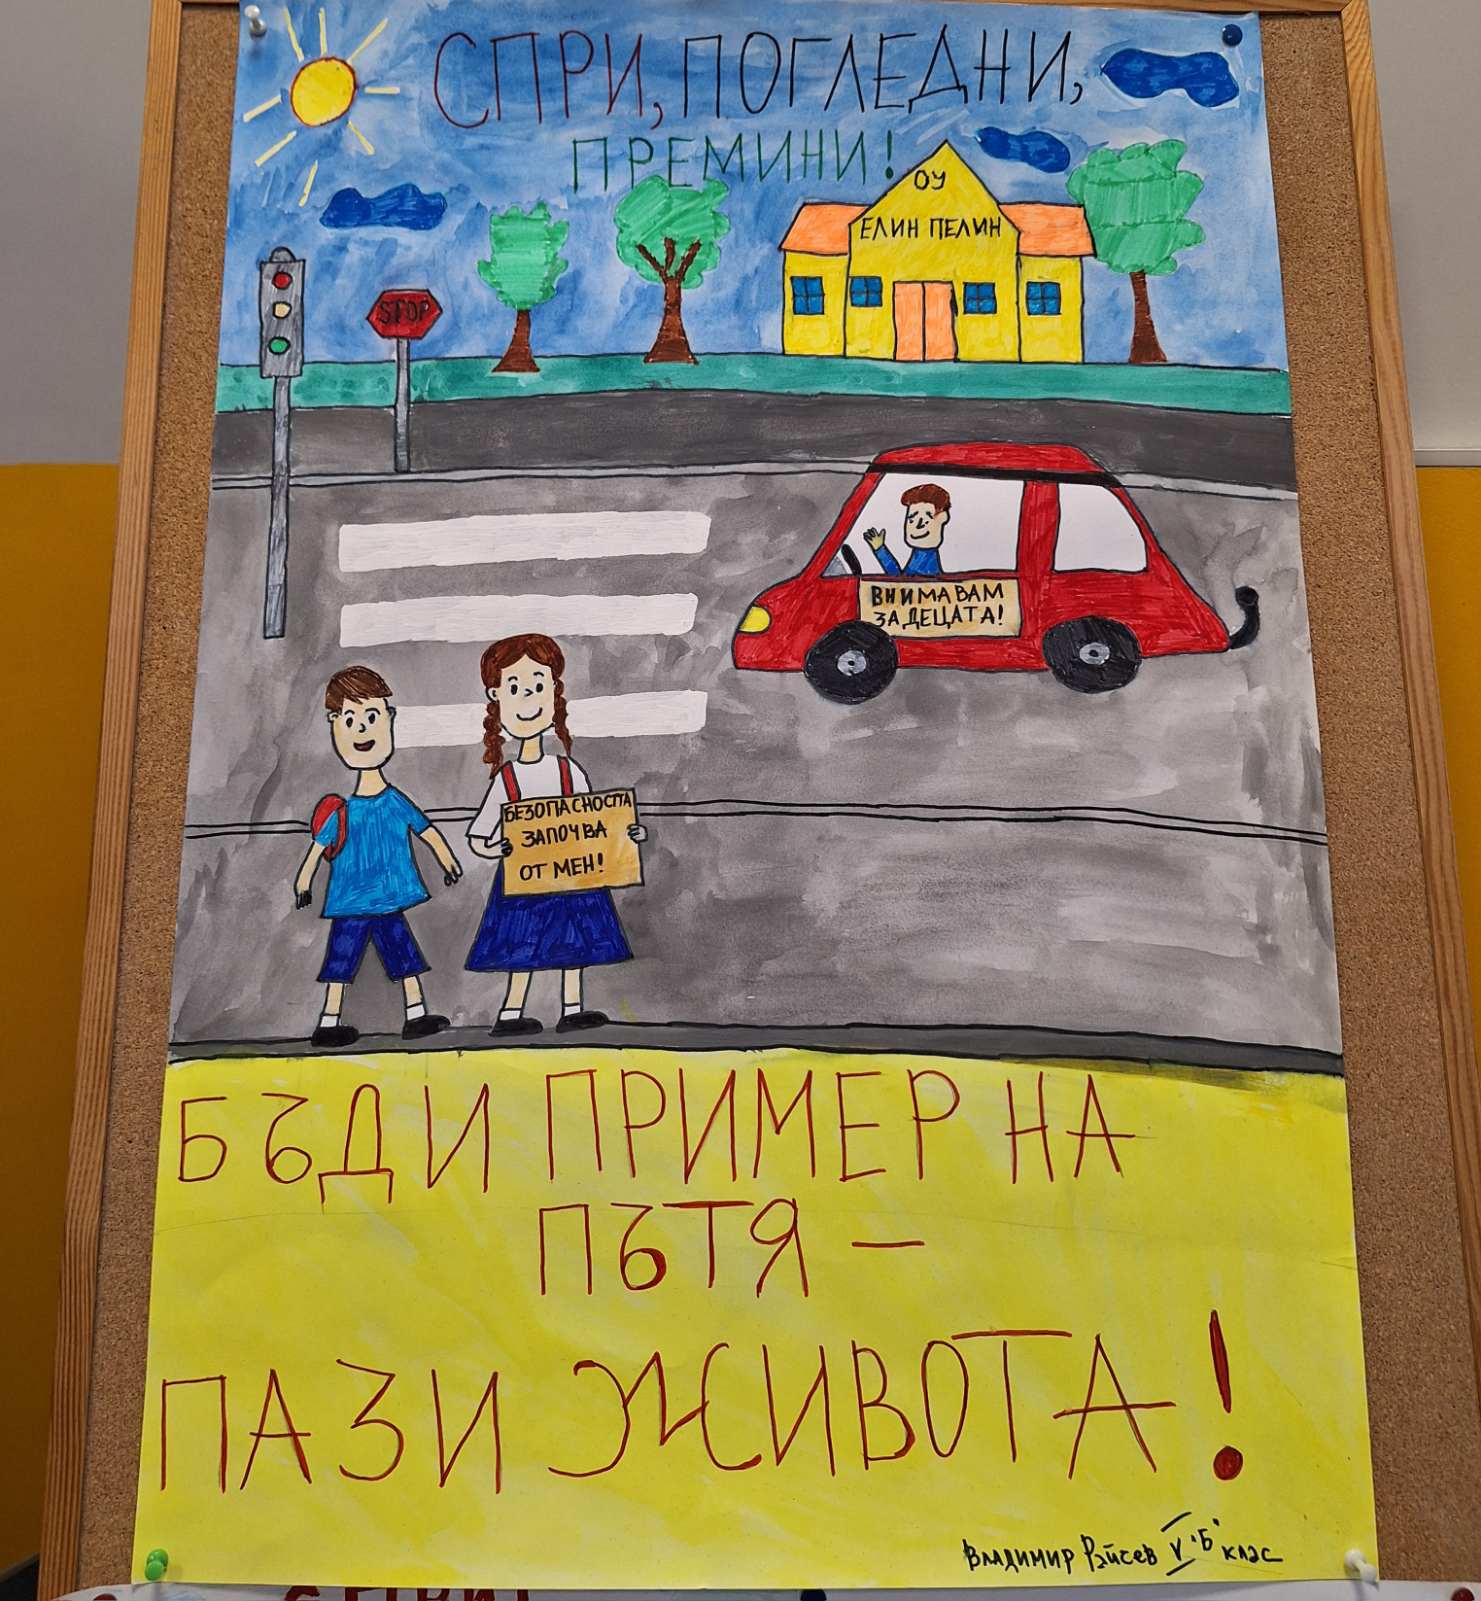 СПРИ, ПОГЛЕДНИ,
ПРЕМИНИ!
ОУ
ЕЛИН ПЕЛИН
STOP
ВНИМАВАМ
ЗА ДЕЦАТА!
БЕЗОПАСНОСТТА
ЗАПОЧВА
ОТ МЕН!
БЪДИ ПРИМЕР НА
ПЪТЯ –
ПАЗИ ЖИВОТА!
Владимир Райсев V "Б" клас